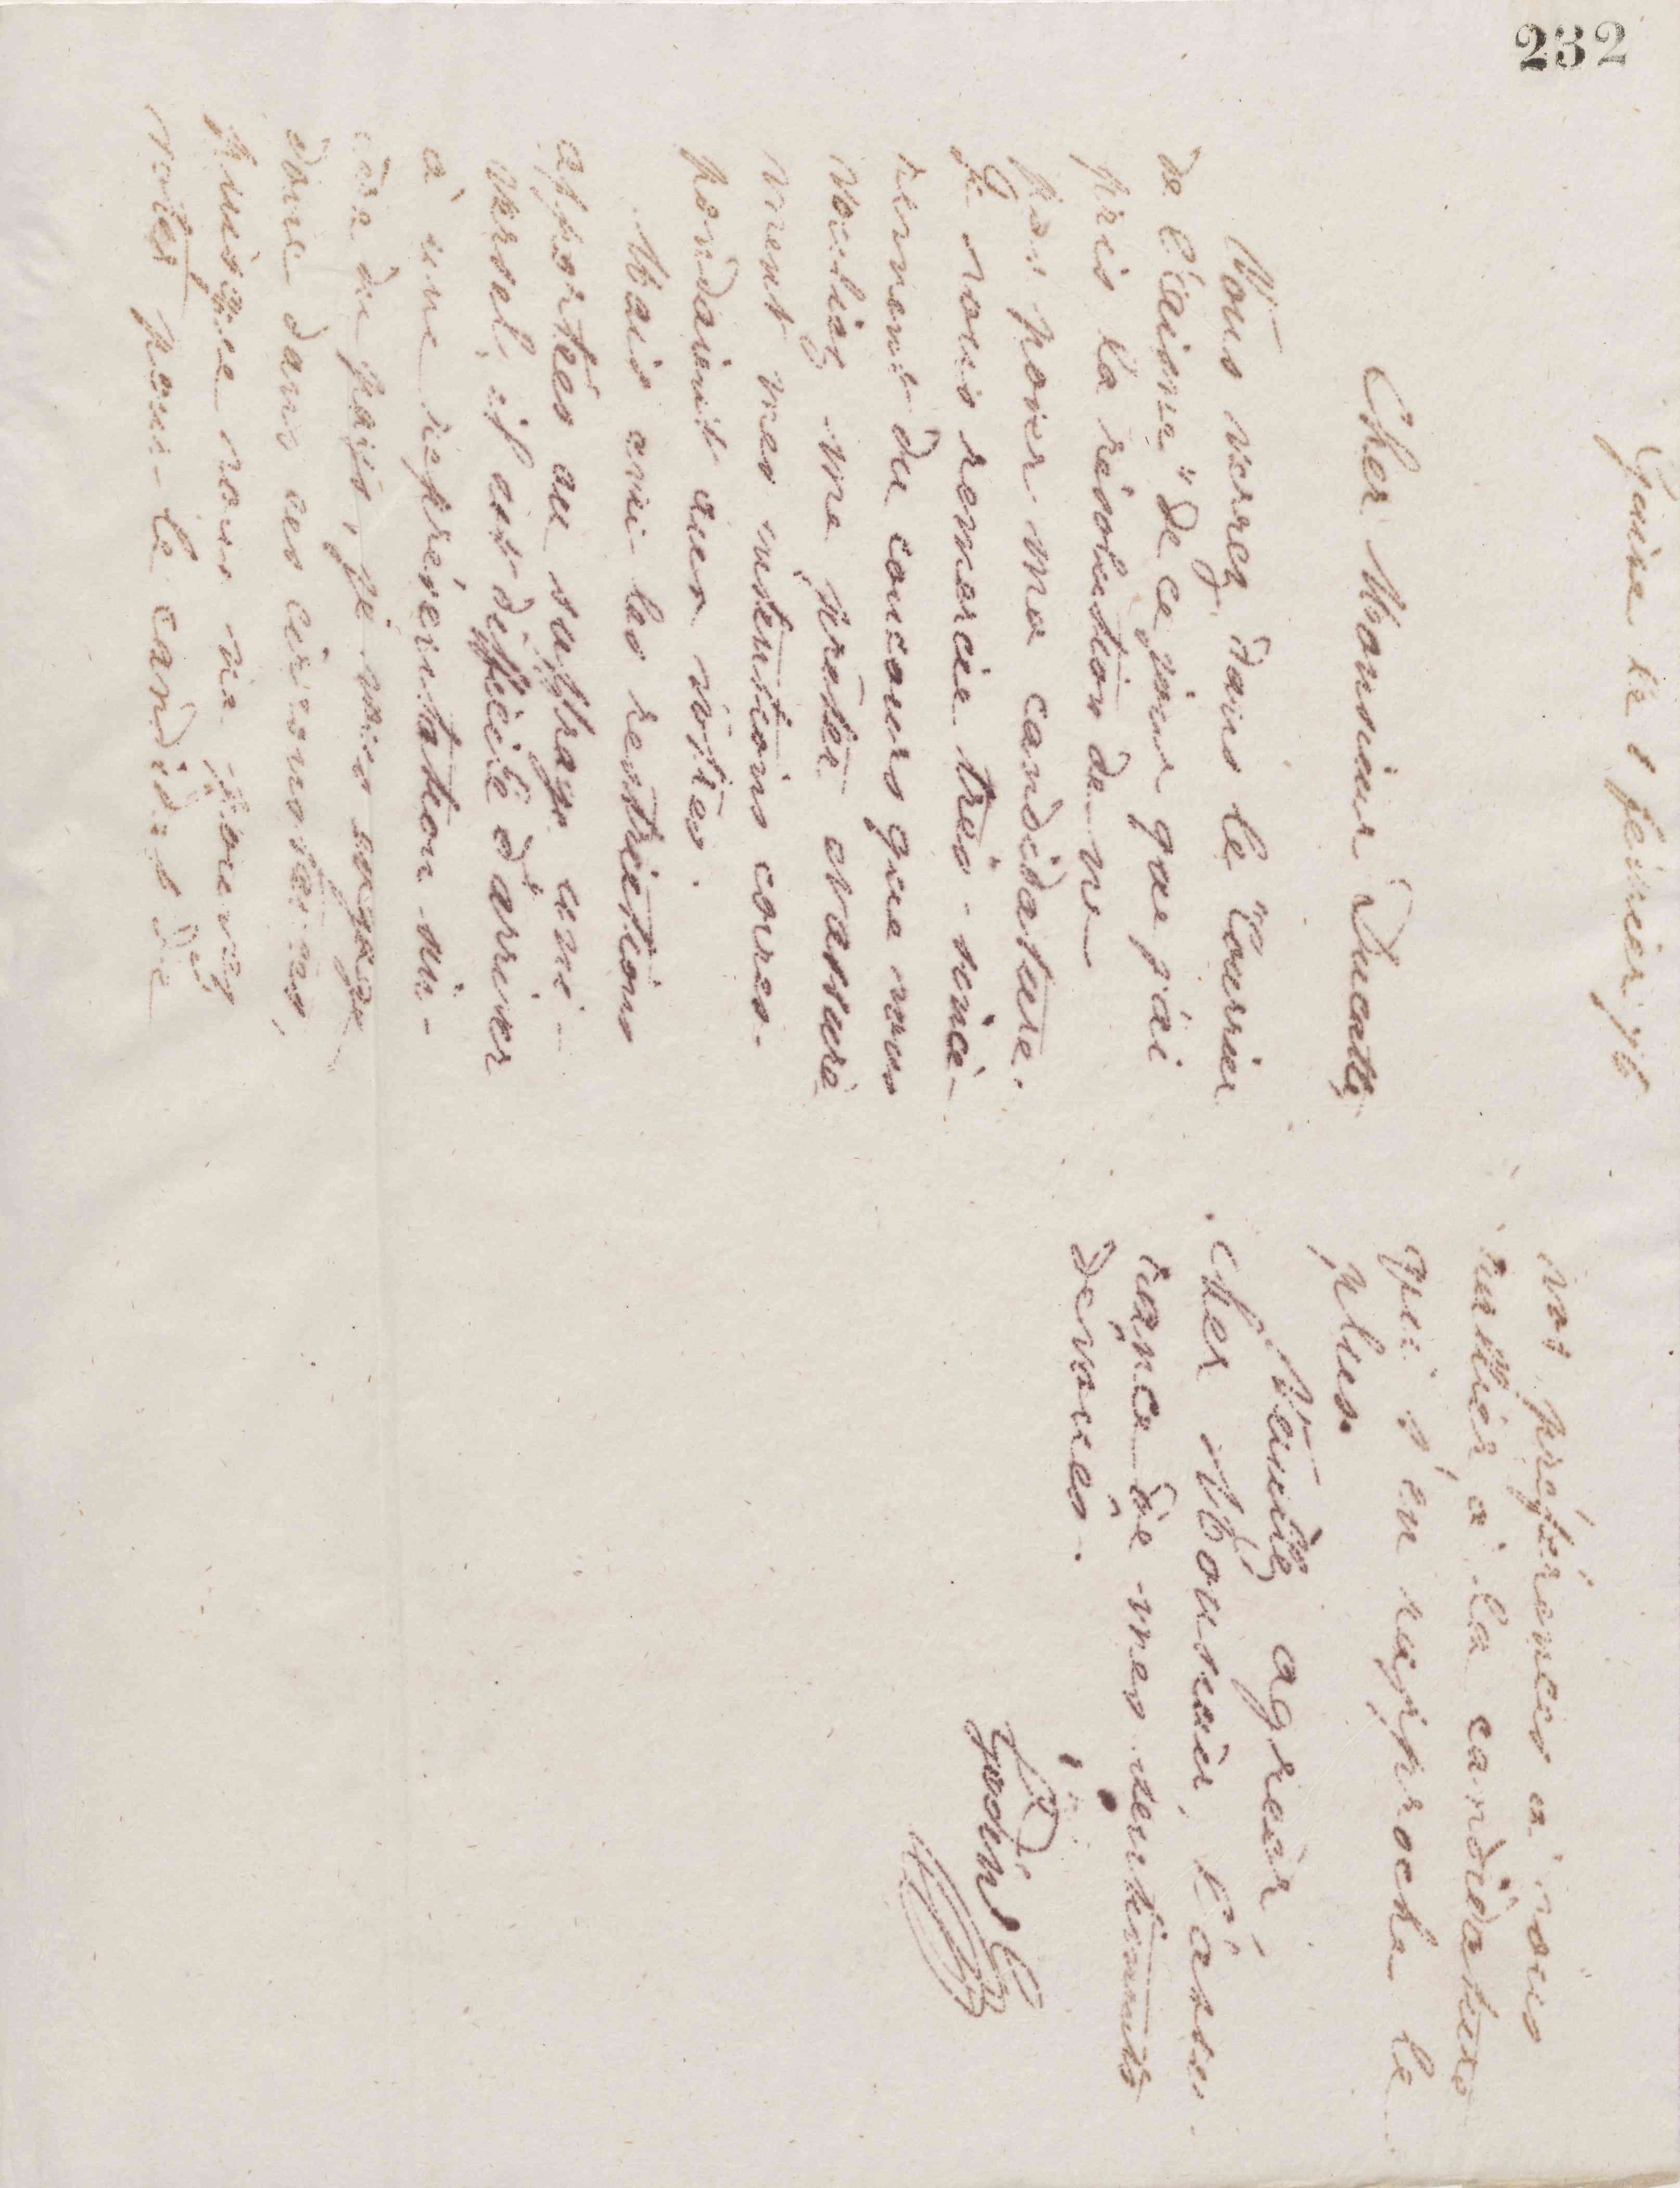 232
Guise le 8 février 76
Cher Monsieur Ducatty
Vous verrez dans le "Courrier
de l'Aisne" de ce jour que j'ai
pris la résolution de ne
pas poser ma candidature.
Je vous remercie très-sincè-
rement du concours que vous
vouliez me prêter m'assuré
ment mes intentions corres-
pondaient aux vôtres.
Mais avec les restrictions
apportées au suffrage uni-
versel, il est difficile d'arriver
à une représentation sin-
cère du pays, je vous engage
donc dans ces circonstances,
puisque vous ne pouvez
voter pour le candidat de
vos préférences à vous
rallier à la candidature
qui s'en rapproche le
plus.
Veuillez agréer
cher Monsieur, l'assu-
rance de mes sentiments
dévoués.
Godin